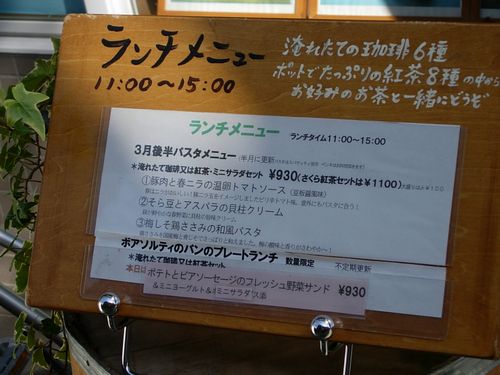 ランチメニュー
11:00〜15:00
淹れたての珈琲6種
ポットでたっぷりの紅茶8種の中から
お好みのお茶と一緒にどうぞ
ランチメニュー ランチタイム11:00〜15:00
3月後半パスタメニュー（半月に更新
*淹れたて珈琲又は紅茶・ミニサラダセット ¥930(さくら紅茶セットは¥1100)
①豚肉と春ニラの温卵トマトソース（豆板醤風味）
②そら豆とアスパラの貝柱クリーム
③梅しそ鶏ささみの和風パスタ
ボアソルティのパンのプレートランチ 数量限定 不定期更新
*淹れたて珈琲又は紅茶セット
本日は ポテトとビアソーセージのフレッシュ野菜サンド
&ミニヨーグルト&ミニサラダ ¥930